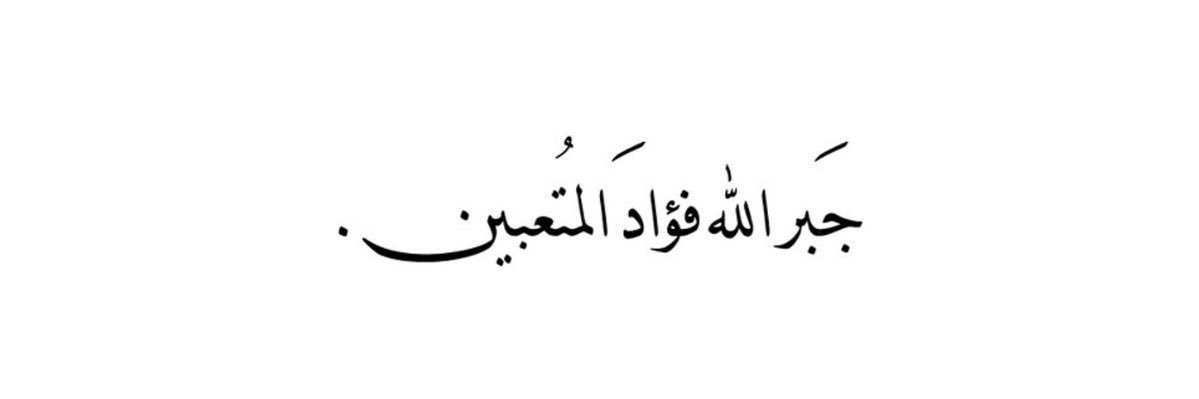 جَبر الله فؤادَ المُتعبين .